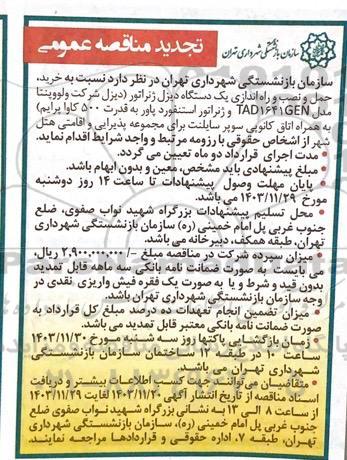 سازمان بازنشستگی شهرداری تهران
تجدید مناقصه عمومی
سازمان بازنشستگی شهرداری تهران در نظر دارد نسبت به خرید،
حمل و نصب و راه اندازی یک دستگاه دیزل ژنراتور (دیزل شرکت ولووپنتا
مدل TAD1641GEN و ژنراتور استنفورد پاور به قدرت ۵۰۰ کاوا پرایم)
به همراه اتاق کانوپی سوپر سایلنت برای مجموعه پذیرایی و اقامتی هتل
شهر از اشخاص حقوقی با رزومه مرتبط و واجد شرایط اقدام نماید.
• مدت اجرای قرارداد دو ماه تعیین می گردد.
• مبلغ پیشنهادی باید مشخص، معین و بدون ابهام باشد.
• پایان مهلت وصول پیشنهادات تا ساعت ۱۴ روز دوشنبه
مورخ ۱۴۰۳/۱۱/۲۹ می باشد.
• محل تسلیم پیشنهادات بزرگراه شهید نواب صفوی، ضلع
جنوب غربی پل امام خمینی (ره) سازمان بازنشستگی شهرداری
تهران، طبقه همکف، دبیرخانه می باشد.
• میزان سپرده شرکت در مناقصه مبلغ -/۲,۹۰۰,۰۰۰,۰۰۰ ریال،
می بایست به صورت ضمانت نامه بانکی سه ماهه قابل تمدید
بدون قید و شرط و یا به صورت یک فقره فیش واریزی نقدی در
وجه سازمان بازنشستگی شهرداری تهران باشد.
• میزان تضمین انجام تعهدات ده درصد مبلغ کل قرارداد به
صورت ضمانت نامه بانکی معتبر قابل تمدید می باشد.
• زمان بازگشایی پاکتها روز سه شنبه مورخ ۱۴۰۳/۱۱/۳۰
ساعت ۱۰ در طبقه ۱۲ ساختمان سازمان بازنشستگی
شهرداری تهران می باشد.
• متقاضیان می توانند جهت کسب اطلاعات بیشتر و دریافت
اسناد مناقصه از تاریخ انتشار آگهی ۱۴۰۳/۱۱/۲۰ لغایت ۱۴۰۳/۱۱/۲۹
از ساعت ۸ الی ۱۳ به نشانی بزرگراه شهید نواب صفوی ضلع
جنوب غربی پل امام خمینی (ره)، سازمان بازنشستگی شهرداری
تهران، طبقه ۷، اداره حقوقی و قراردادها مراجعه نمایند.